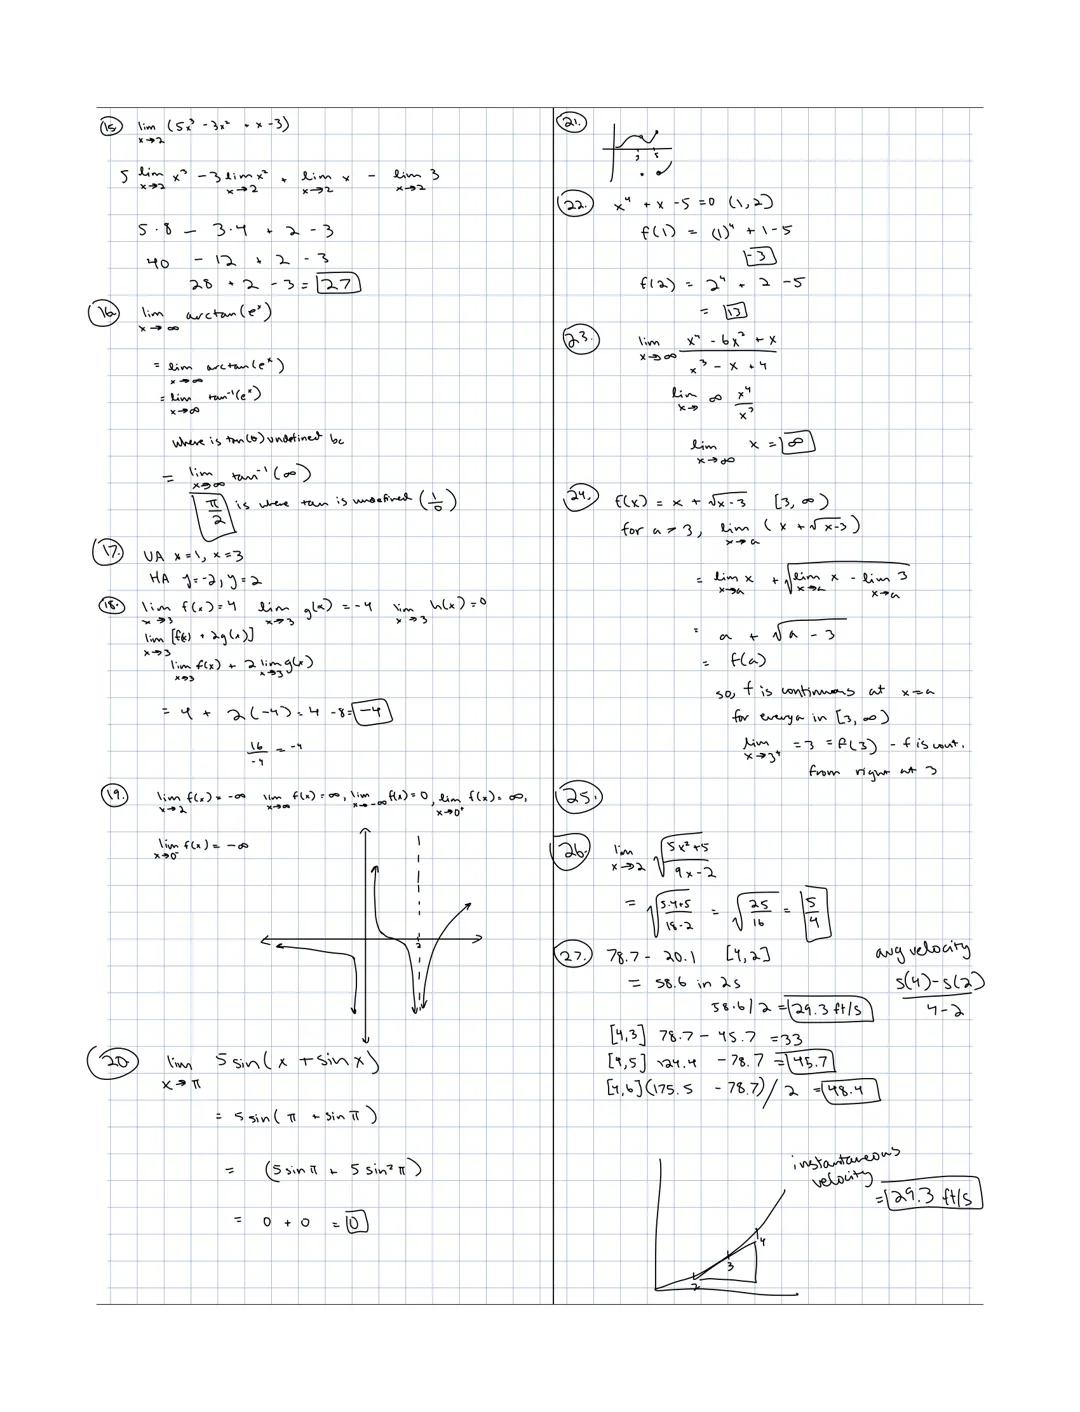 15 lim x→2 (5x³ - 3x² + x - 3)
5 lim x→2 x³ - 3 lim x→2 x² + lim x→2 x - lim x→2 3
5·8 - 3·4 + 2 - 3
40 - 12 + 2 - 3
28 + 2 - 3 = 27
16 lim x→∞ arctan(eˣ)
= lim x→∞ arctan(eˣ)
= lim x→∞ tan⁻¹(eˣ)
where is tan(θ) undefined bc
= lim x→∞ tan⁻¹(∞)
π/2 is where tan is undefined (1/0)
17. VA x=1, x=3
HA y=-2, y=2
18. lim x→3 f(x)=4 lim x→3 g(x)=-4 lim x→3 h(x)=0
lim x→3 [f(x) + 2g(x)]
lim x→3 f(x) + 2 lim x→3 g(x)
= 4 + 2(-4) = 4 - 8 = -4
16/-4 = -4
19. lim x→2 f(x) = -∞ lim x→∞ f(x) = ∞, lim x→-∞ f(x) = 0, lim x→0⁺ f(x) = ∞,
lim x→0⁻ f(x) = -∞
2
20. lim x→π 5 sin(x + sin x)
= 5 sin(π + sin π)
= (5 sin π + 5 sin² π)
= 0 + 0 = 0
21.
3 5
22. x⁴ + x - 5 = 0 (1,2)
f(1) = (1)⁴ + 1 - 5
-3
f(2) = 2⁴ + 2 - 5
= 13
23. lim x→∞ x⁴ - 6x² + x / x³ - x + 4
lim x→ ∞ x⁴/x³
lim x→∞ x = ∞
24. f(x) = x + √x-3 [3, ∞)
for a > 3, lim x→a (x + √x-3)
= lim x→a x + √lim x→a x - lim x→a 3
= a + √a - 3
= f(a)
so, f is continuous at x=a
for every a in [3, ∞)
lim x→3⁺ = 3 = f(3) - f is cont.
from right at 3
25.
26. lim x→2 √5x²+5 / 9x-2
= √5·4+5 / 18-2 = √25/16 = 5/4
27. 78.7 - 20.1 [4,2] avg velocity
= 58.6 in 2s s(4)-s(2) / 4-2
58.6/2 = 29.3 ft/s
[4,3] 78.7 - 45.7 = 33
[4,5] 124.4 - 78.7 = 45.7
[4,6] (175.5 - 78.7)/2 = 48.4
instantaneous
velocity
= 29.3 ft/s
2 3 4